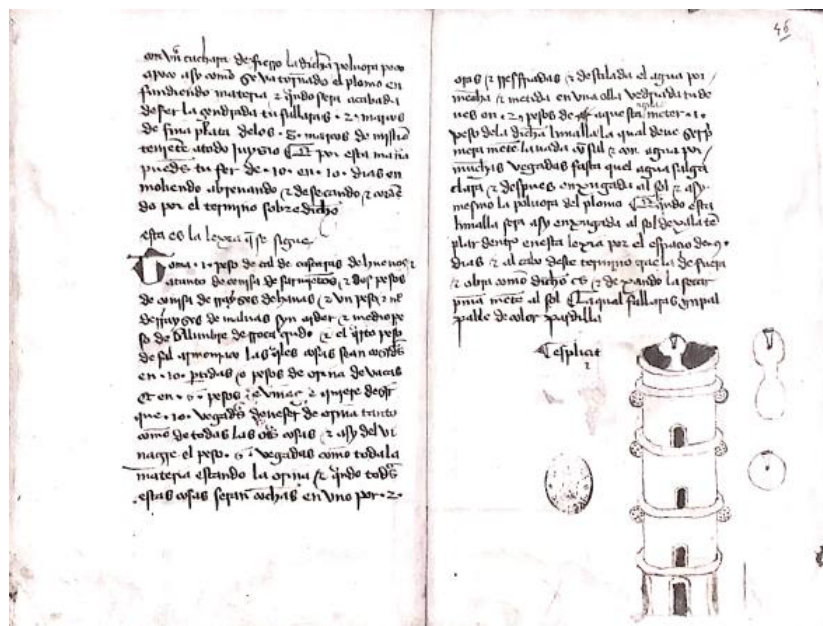 con un cuchara de fierro la dicha polvora poco
apoco asy como se va tornado el plomo en
fundiendo materia & qndo sera acabada
de fer la cendrada tu fallaras .2. marcos
de fina plata delos .8. marcos de
teniente atodo juyzio por esta mana
puedes tu fer de .10. en .10. dias en
moliendo abrenando & desecando &
do por el termino sobre dicho
esta es la lexia q se sigue
Toma .1. peso de cal de cascaras de huevos &
atanto de cenisa de sarmientos & dos pesos
de cenisa de rrayses de havas & un peso
de rrayses de malvas syn arder & medio pe
so de alumbre de rroca & el qrto peso
de sal armonico las qles cosas sean
en .10. ptidas o pesos de orina de vacas
en .5. pesos vinagre & quiere desir
que .10. vegads deve ser de orina tanto
como de todas las cosas & asy del vi
nagre el peso .5. vegadas como toda la
materia estando la orina & qndo tods
estas cosas seran cochas en uno por .2.
46
oras & rresfriadas & destilada el agua por
mecha & metida en una olla vedriada tu de
ves en .2. pesos de aquesta meter .1.
peso dela dicha limalla la qual deve
mera mete lavada co sal & con agua por
muchas vegadas fasta quel agua salga
clara & despues enxugada al sol & asy
mesmo la polvora del plomo qndo esta
limalla sera asy enxugada al sol dexala te
plar dentro en esta lexia por el espacio de .9.
dias & al cabo deste termino saca la de fuera
& obra como dicho es & dexando la secar
pma mete al sol la qual fallaras
de color pardilla
esplicit